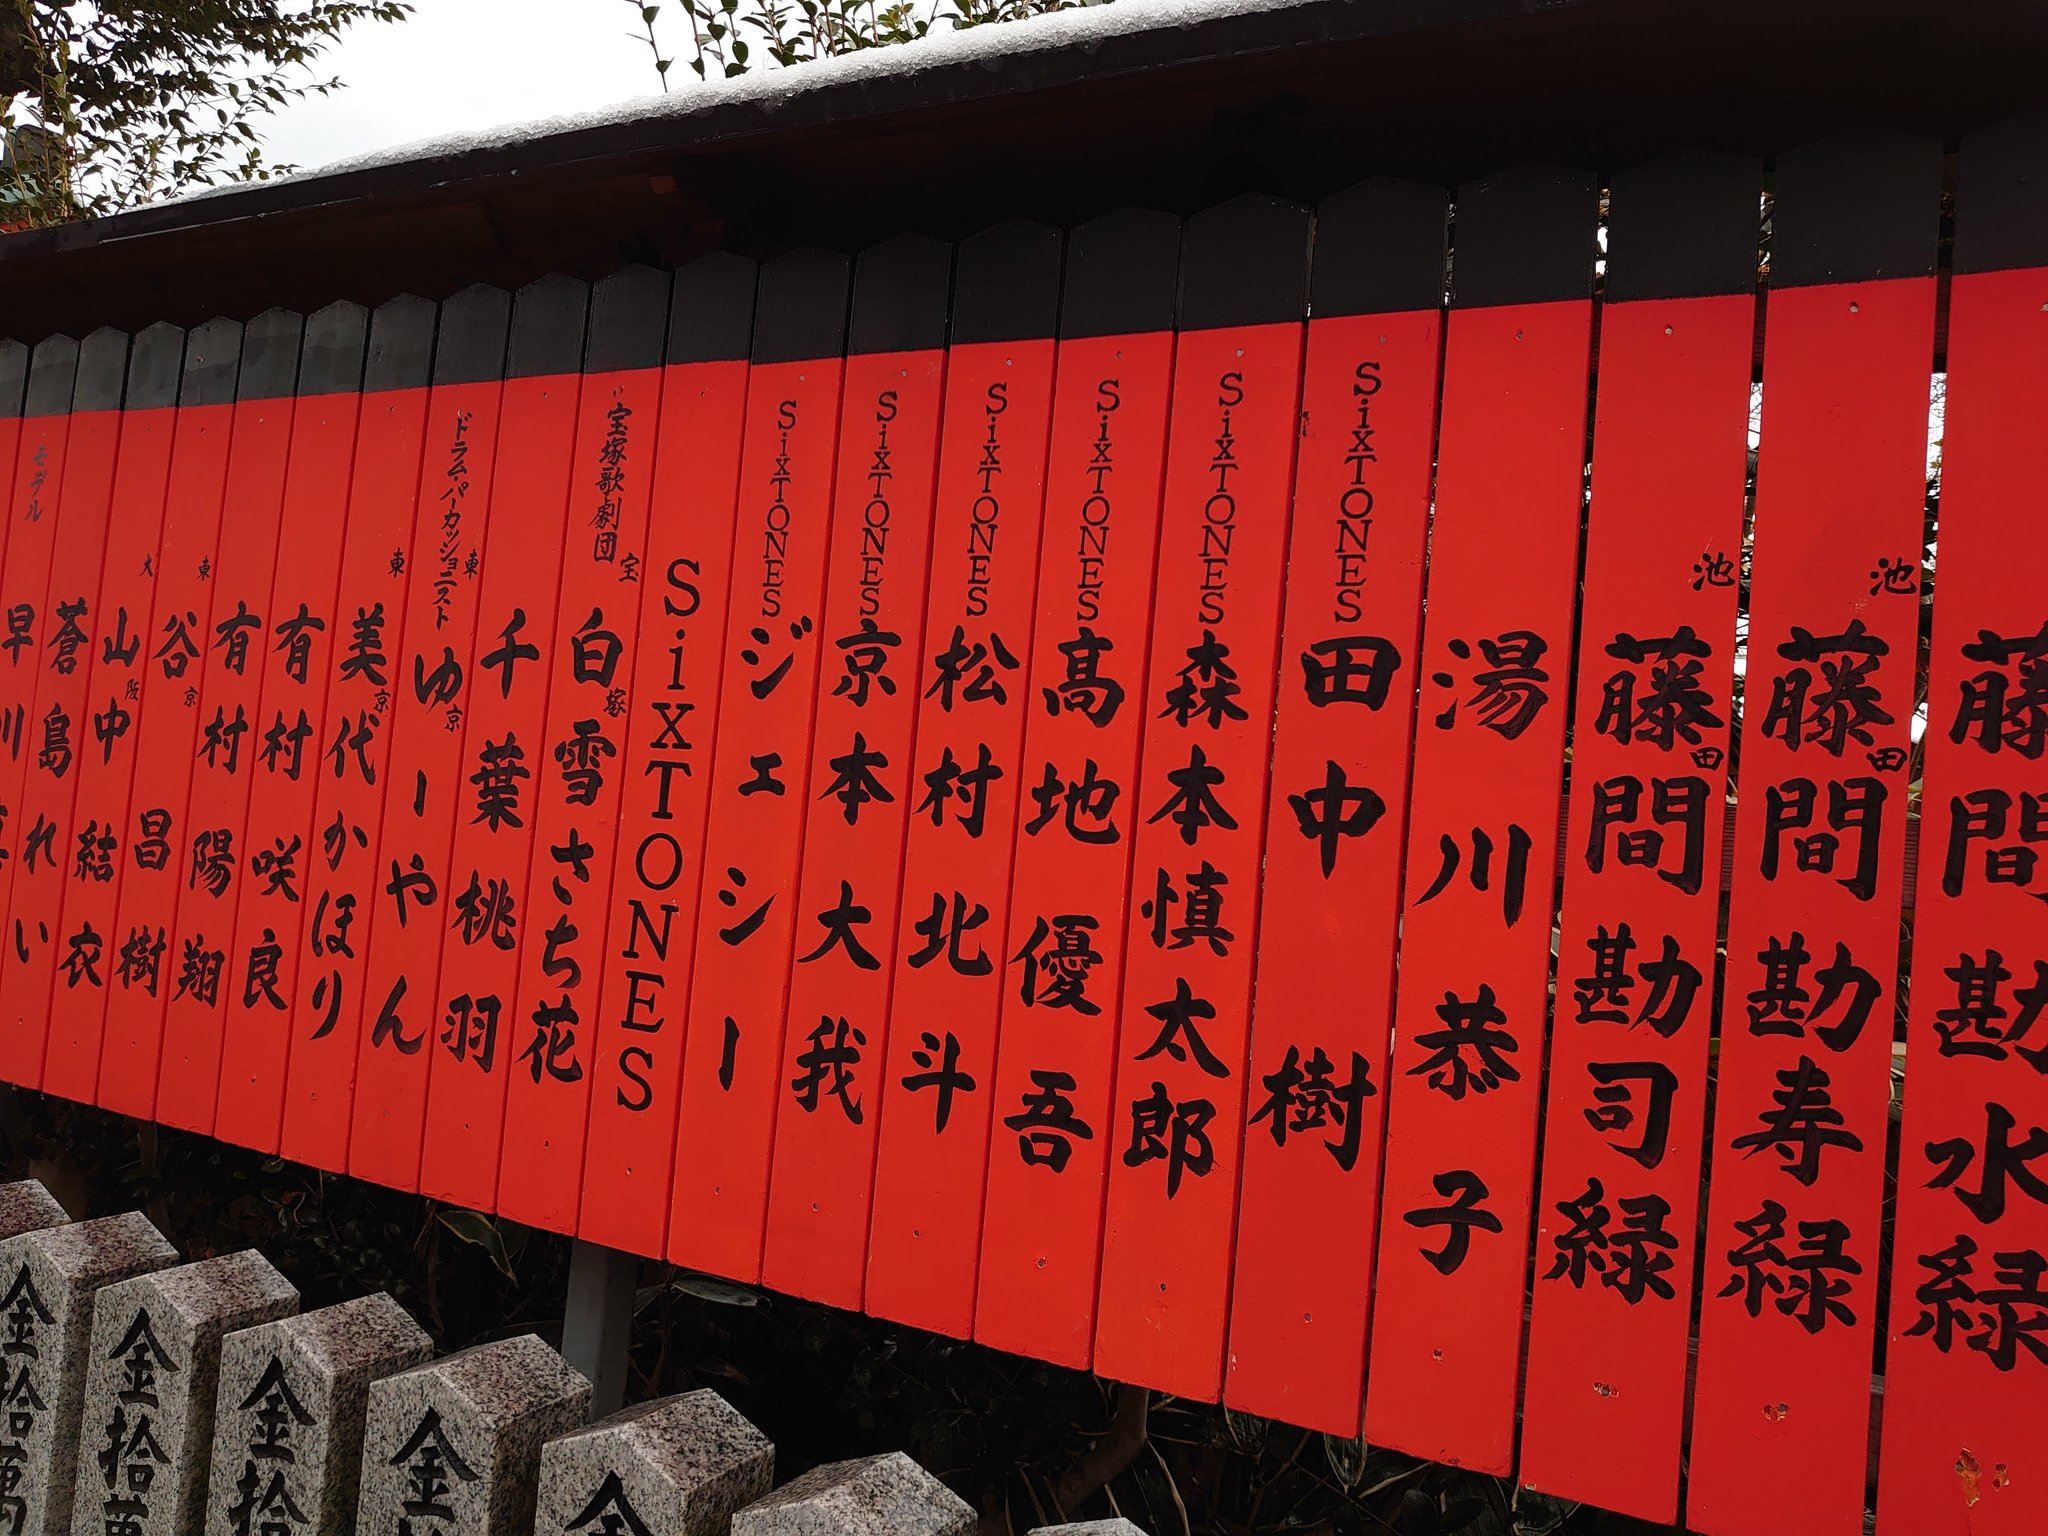 池田
藤間勘寿緑
池田
藤間勘司緑
湯川恭子
SixTONES
田中樹
SixTONES
森本慎太郎
SixTONES
髙地優吾
SixTONES
松村北斗
SixTONES
京本大我
SixTONES
ジェシー
SixTONES
宝塚歌劇団
宝塚
白雪さち花
千葉桃羽
ドラム・パーカッショニスト
東京
ゆーやん
東京
美代かほり
有村咲良
有村陽翔
東京
谷昌樹
大阪
山中結衣
蒼島れい
モデル
早川
金拾萬
金拾萬
金拾
金
金